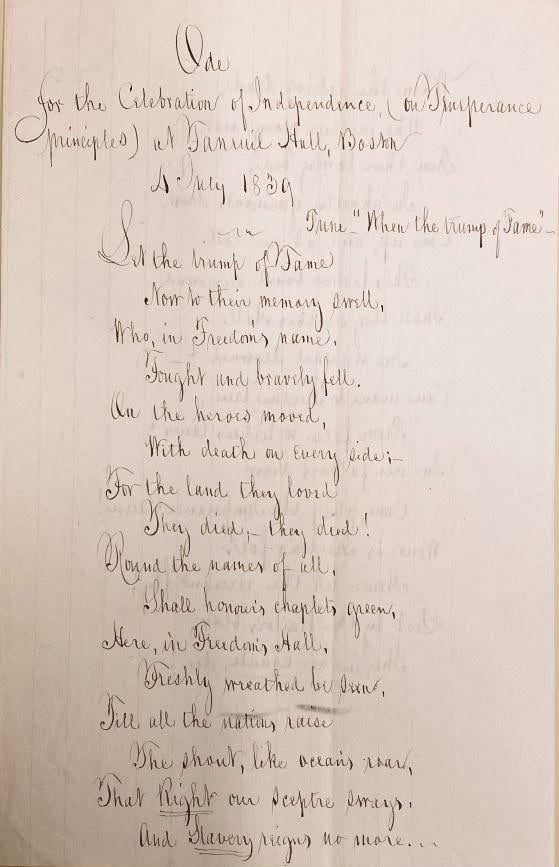 Ode
for the Celebration of Independence, (on Temperance
principles) at Faneuil Hall, Boston
4 July 1839
Tune "When the trump of Fame"-
Let the trump of Fame
Now to their memory swell,
Who, in Freedom's name,
Fought and bravely fell.
On the heroes moved,
With death on every side;-
For the land they loved
They died,- they died!
Round the names of all,
Shall honour's chaplets green,
Here, in Freedom's Hall,
Freshly wreathed be seen,
Till all the nations raise
The shout, like ocean's roar,
That Right our sceptre sways,
And Slavery reigns no more...